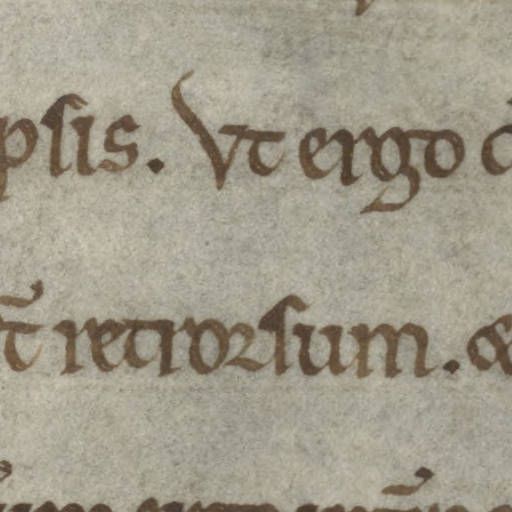 psis. Vt ergo
retrorsum. &